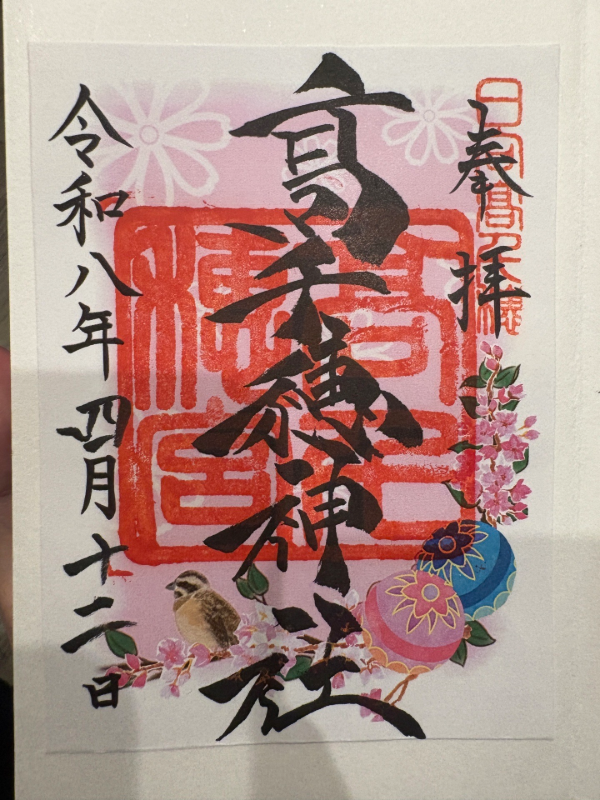 日向髙千穂
奉拝
高千穂神社
髙千
穂宮
令和八年四月十二日